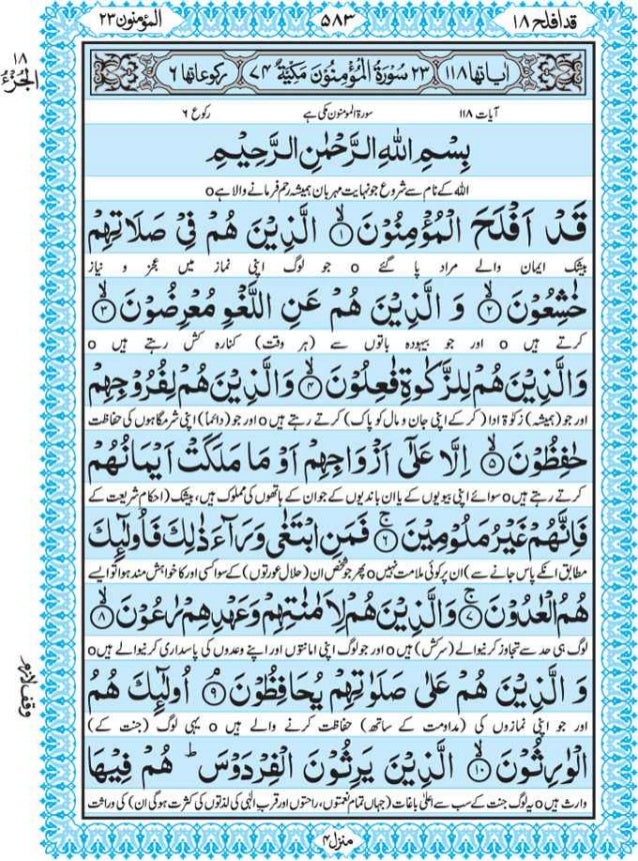 المؤمنون ٢٣
٥٨٣
قد افلح ١٨
١٨
الجزء
اٰیاتها ١١٨
٢٣ سُوْرَةُ الْمُؤْمِنُوْنَ مَكِّيَّةٌ ٧٤
رکوعاتها ٦
آیات ١١٨
سورۃ المؤمنون مکی ہے
رکوع ٦
بِسْمِ اللّٰهِ الرَّحْمٰنِ الرَّحِيْمِ
اللہ کے نام سے شروع جو نہایت مہربان ہمیشہ رحم فرمانے والا ہے o
قَدْ اَفْلَحَ الْمُؤْمِنُوْنَ ۙ﴿١﴾ الَّذِيْنَ هُمْ فِيْ صَلَاتِهِمْ
بیشک ایمان والے مراد پا گئے o جو لوگ اپنی نماز میں عجز و نیاز
خٰشِعُوْنَ ۙ﴿٢﴾ وَ الَّذِيْنَ هُمْ عَنِ اللَّغْوِ مُعْرِضُوْنَ ۙ﴿٣﴾
کرتے ہیں o اور جو بیہودہ باتوں سے (ہر وقت) کنارہ کش رہتے ہیں o
وَالَّذِيْنَ هُمْ لِلزَّكٰوةِ فٰعِلُوْنَ ۙ﴿٤﴾ وَالَّذِيْنَ هُمْ لِفُرُوْجِهِمْ
اور جو (ہمیشہ) زکوٰۃ ادا (کر کے اپنی جان و مال کو پاک) کرتے رہتے ہیں o اور جو (دائماً) اپنی شرمگاہوں کی حفاظت
حٰفِظُوْنَ ۙ﴿٥﴾ اِلَّا عَلٰۤى اَزْوَاجِهِمْ اَوْ مَا مَلَكَتْ اَيْمَانُهُمْ
کرتے رہتے ہیں o سوائے اپنی بیویوں کے یا ان باندیوں کے جو ان کے ہاتھوں کی مملوک ہیں، بیشک (احکامِ شریعت کے
فَاِنَّهُمْ غَيْرُ مَلُوْمِيْنَ ۚ﴿٦﴾ فَمَنِ ابْتَغٰى وَرَآءَ ذٰلِكَ فَاُولٰٓئِكَ
مطابق انکے پاس جانے سے) ان پر کوئی ملامت نہیں o پھر جو شخص ان (حلال عورتوں) کے سوا کسی اور کا خواہش مند ہوا تو ایسے
هُمُ الْعٰدُوْنَ ۚ﴿٧﴾ وَالَّذِيْنَ هُمْ لِاَمٰنٰتِهِمْ وَعَهْدِهِمْ رٰعُوْنَ ۙ﴿٨﴾
لوگ ہی حد سے تجاوز کرنیوالے (سرکش) ہیں o اور جو لوگ اپنی امانتوں اور اپنے وعدوں کی پاسداری کرنیوالے ہیں o
وَ الَّذِيْنَ هُمْ عَلٰى صَلَوٰتِهِمْ يُحَافِظُوْنَ ۘ﴿٩﴾ اُولٰٓئِكَ هُمُ
اور جو اپنی نمازوں کی (مداومت کے ساتھ) حفاظت کرنے والے ہیں o یہی لوگ (جنت کے)
الْوٰرِثُوْنَ ۙ﴿١٠﴾ الَّذِيْنَ يَرِثُوْنَ الْفِرْدَوْسَ ؕ هُمْ فِيْهَا
وارث ہیں o یہ لوگ جنت کے سب سے اعلیٰ باغات (جہاں تمام نعمتوں، راحتوں اور قربِ الٰہی کی لذتوں کی کثرت ہوگی ان) کی وراثت
وقف لازم
منزل ٤